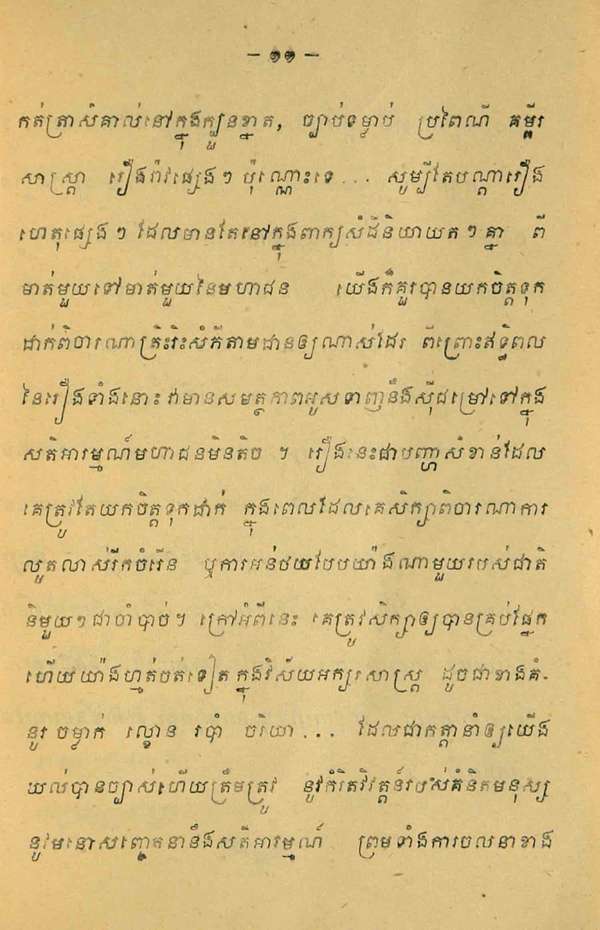 – ១១ –
កត់ត្រាសំគាល់នៅក្នុងក្បួនខ្នាត, ច្បាប់ទម្លាប់ ប្រពៃណី គម្ពីរ
សាស្ត្រា រឿងរ៉ាវផ្សេងៗ ប៉ុណ្ណោះទេ... សូម្បីតែបណ្តារឿង
ហេតុផ្សេងៗ ដែលមានតែនៅក្នុងពាក្យសំដីនិយាយតៗគ្នា ពី
មាត់មួយទៅមាត់មួយនៃមហាជន យើងក៏គួរបានយកចិត្តទុក
ដាក់ពិចារណាត្រិះរិះសំភីតាមដានឲ្យណាស់ដែរ ពីព្រោះឥទ្ធិពល
នៃរឿងទាំងនោះ វាមានសមត្ថភាពអូសទាញនឹងស៊ីជម្រៅទៅក្នុង
សតិអារម្មណ៍មហាជនមិនតិច ។ រឿងនេះជាបញ្ហាសំខាន់ដែល
គេត្រូវតែយកចិត្តទុកដាក់ ក្នុងពេលដែលគេសិក្សាពិចារណាការ
លូតលាស់រីកចំរើន ឬការអន់ថយបែបយ៉ាងណាមួយរបស់ជាតិ
នីមួយៗជាចាំបាច់។ ក្រៅអំពីនេះ គេត្រូវសិក្សាឲ្យបានគ្រប់ផ្នែក
ហើយយ៉ាងហ្មត់ចត់ទៀត ក្នុងវិស័យអក្សរសាស្ត្រ ដូចជាខាងគំ-
នូរ ចម្លាក់ ល្ខោន របាំ ចរិយា... ដែលជាកត្តានាំឲ្យយើង
យល់បានច្បាស់ហើយត្រឹមត្រូវ នូវកំរិតវិវត្តន៍របស់គំនិតមនុស្ស
នូវមនោសញ្ចេតនានឹងសតិអារម្មណ៍ ព្រមទាំងការចលនាខាង